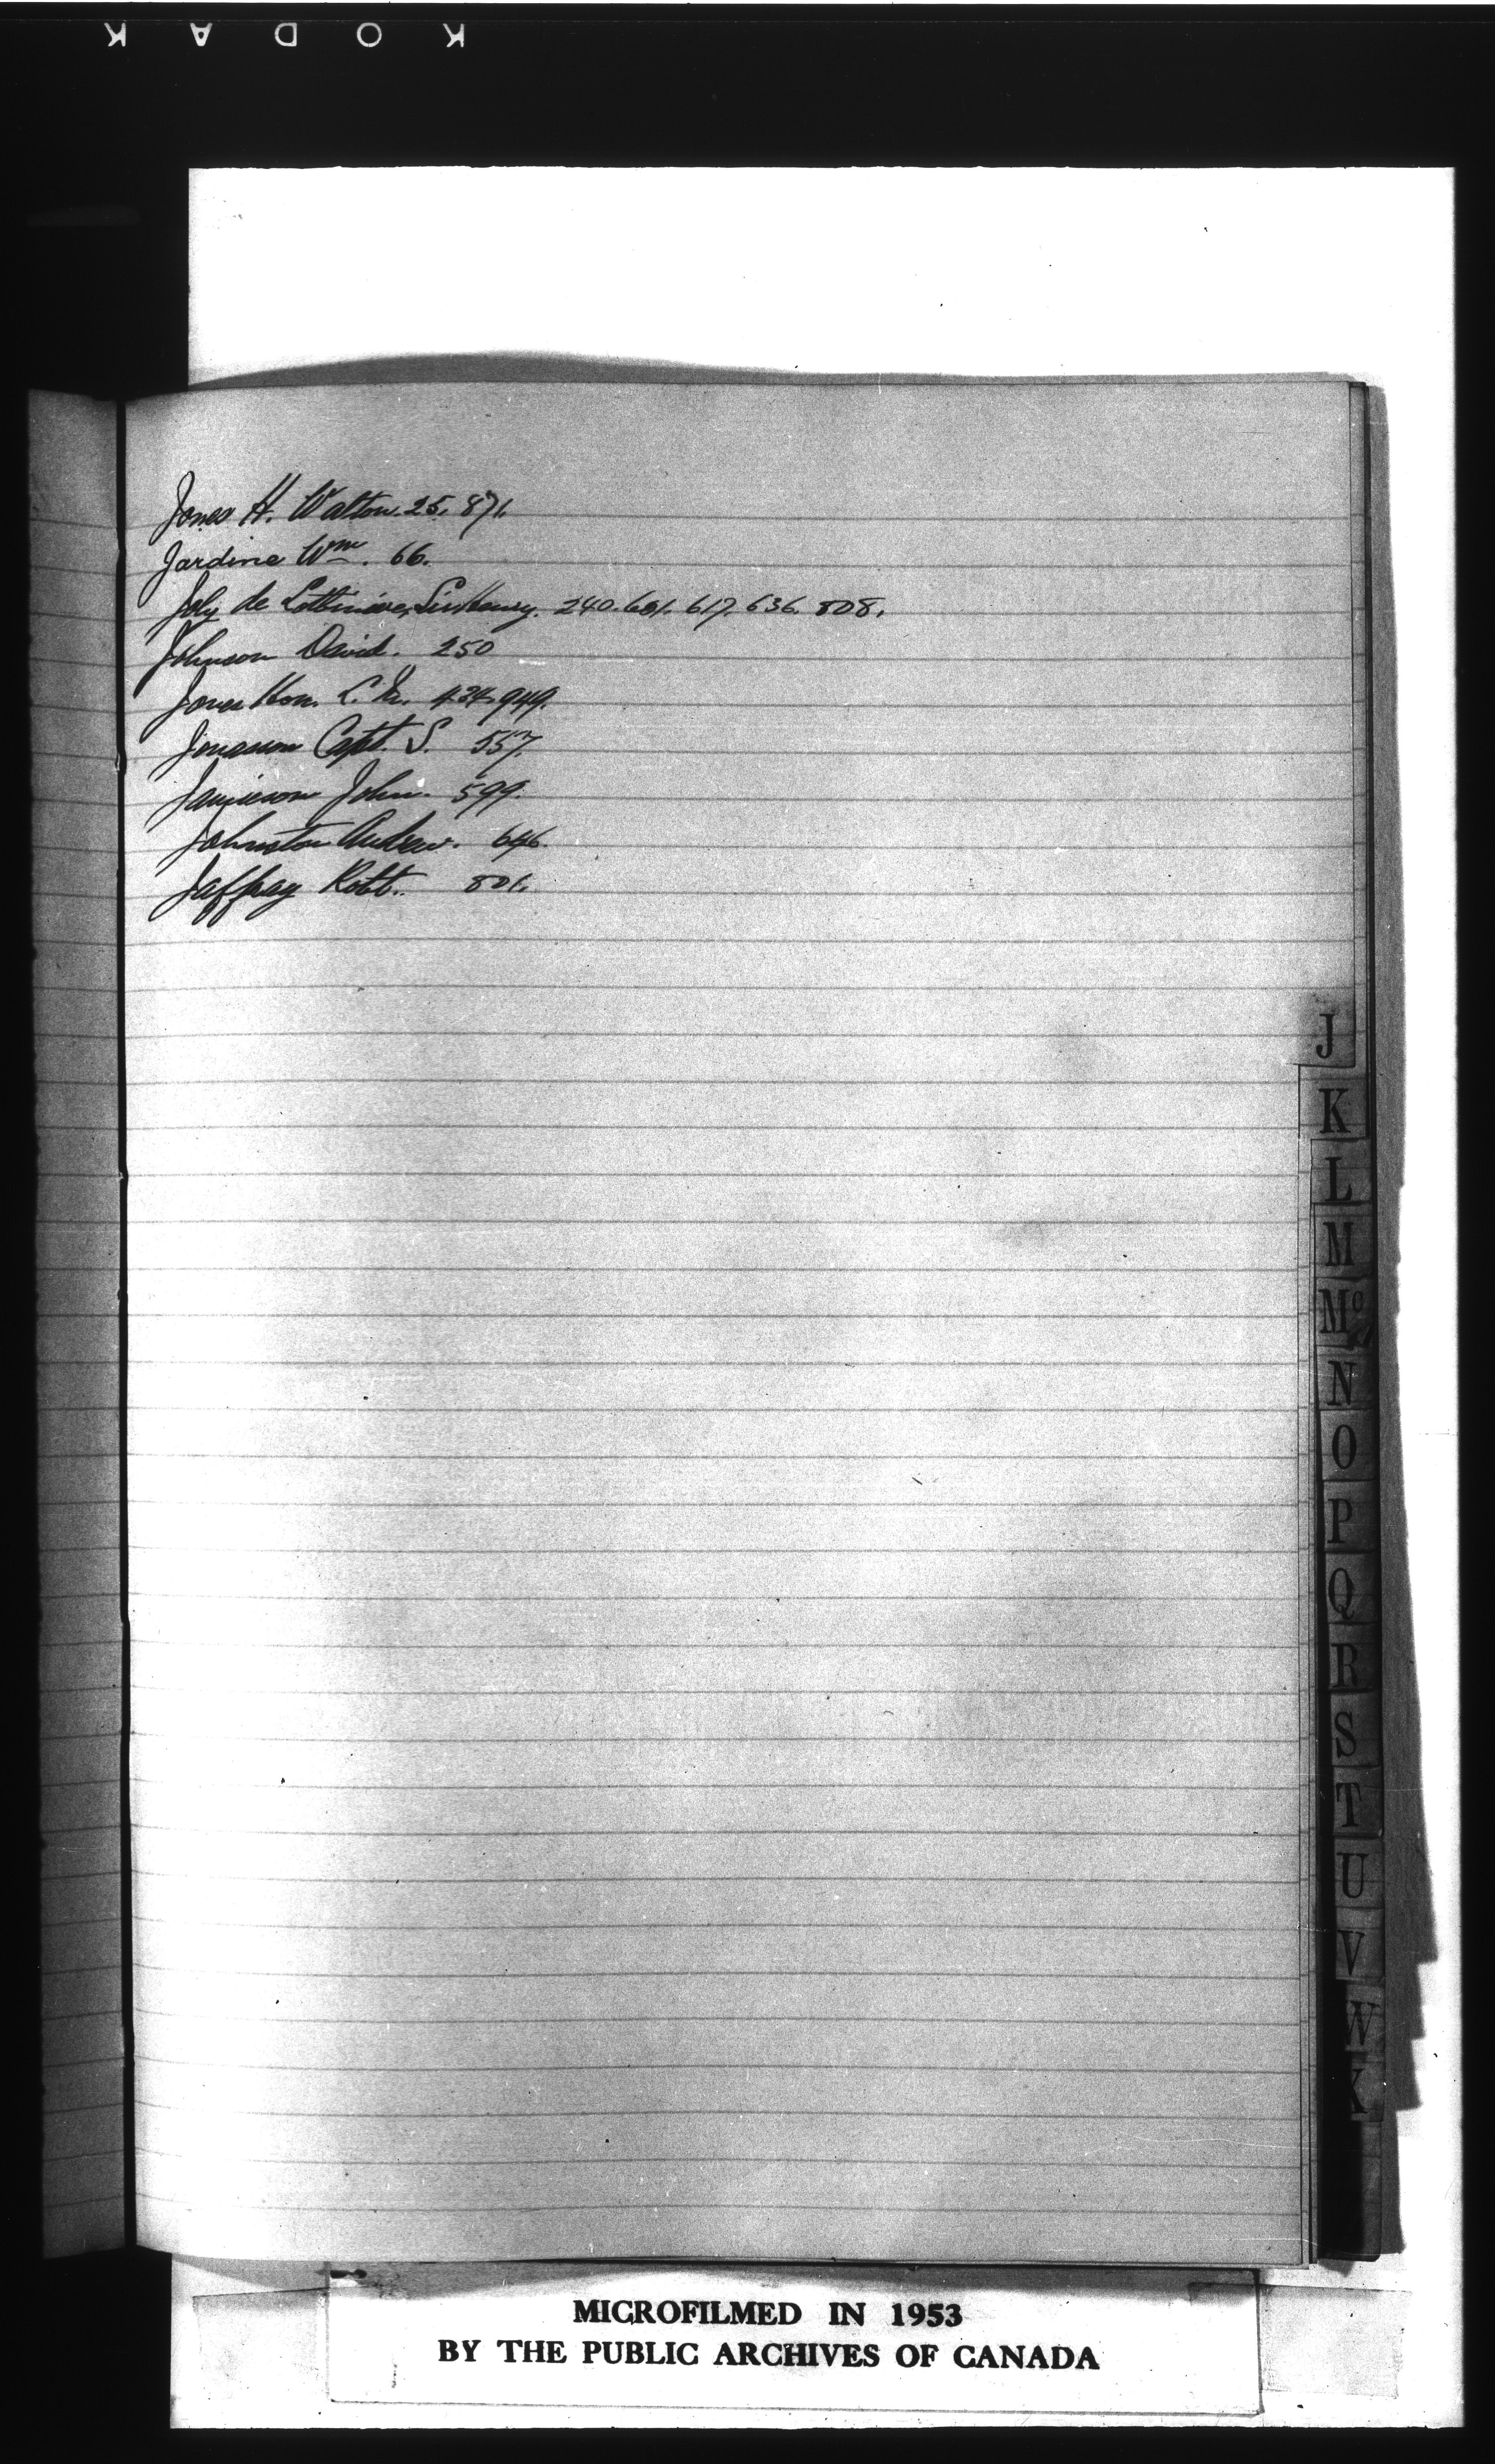 KODAK
Jones H. Walton. 25. 871.
Jardine Wm. 66.
Joly de Lotbiniere, Sir Henry. 240. 601. 617. 636. 808.
Johnson David. 250
Jones Hon. L. M. 434. 949.
Jonasson Capt. S. 557.
Jamieson John. 599.
Johnston Andrew. 646.
Jaffray Robt. 801.
J
K
L
M
Mc
N
O
P
Q
R
S
T
U
V
W
MICROFILMED IN 1953
BY THE PUBLIC ARCHIVES OF CANADA